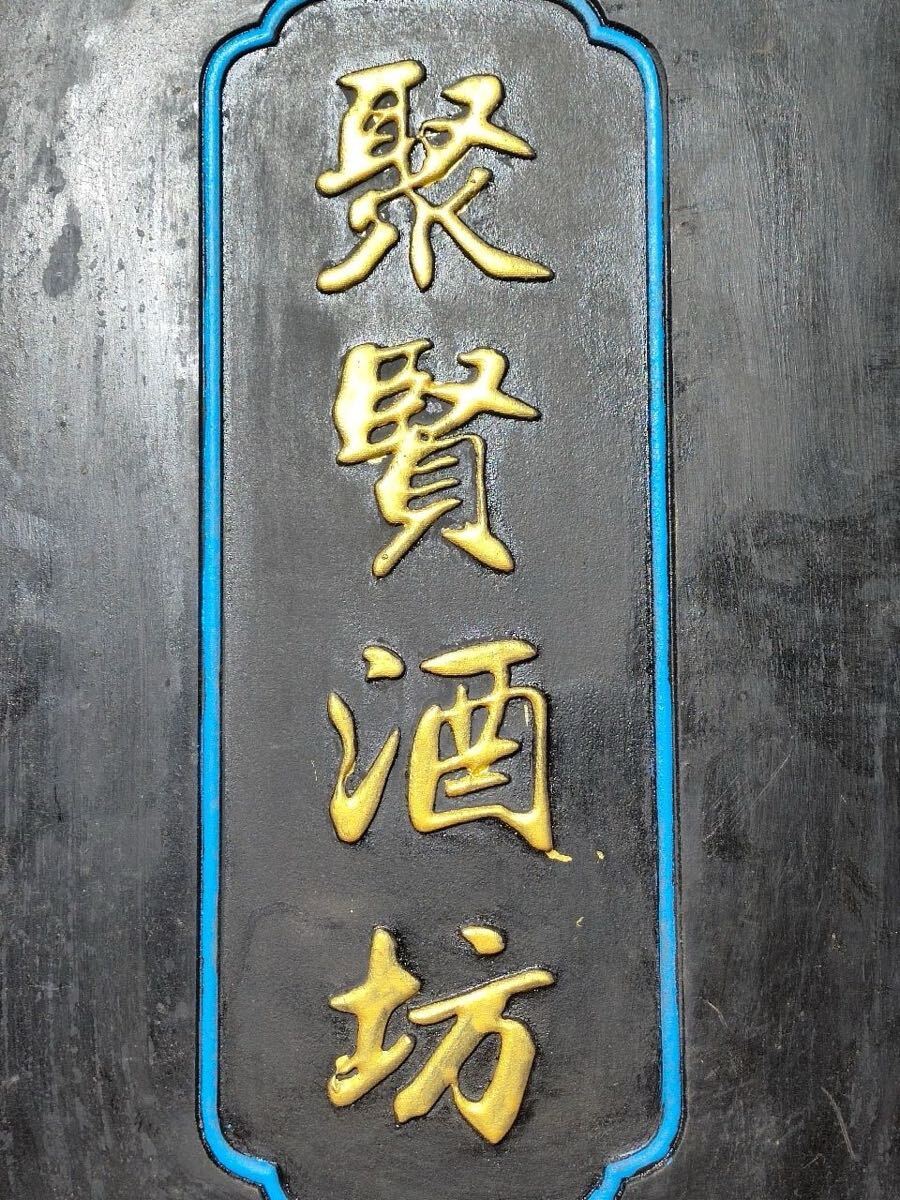 聚賢酒坊